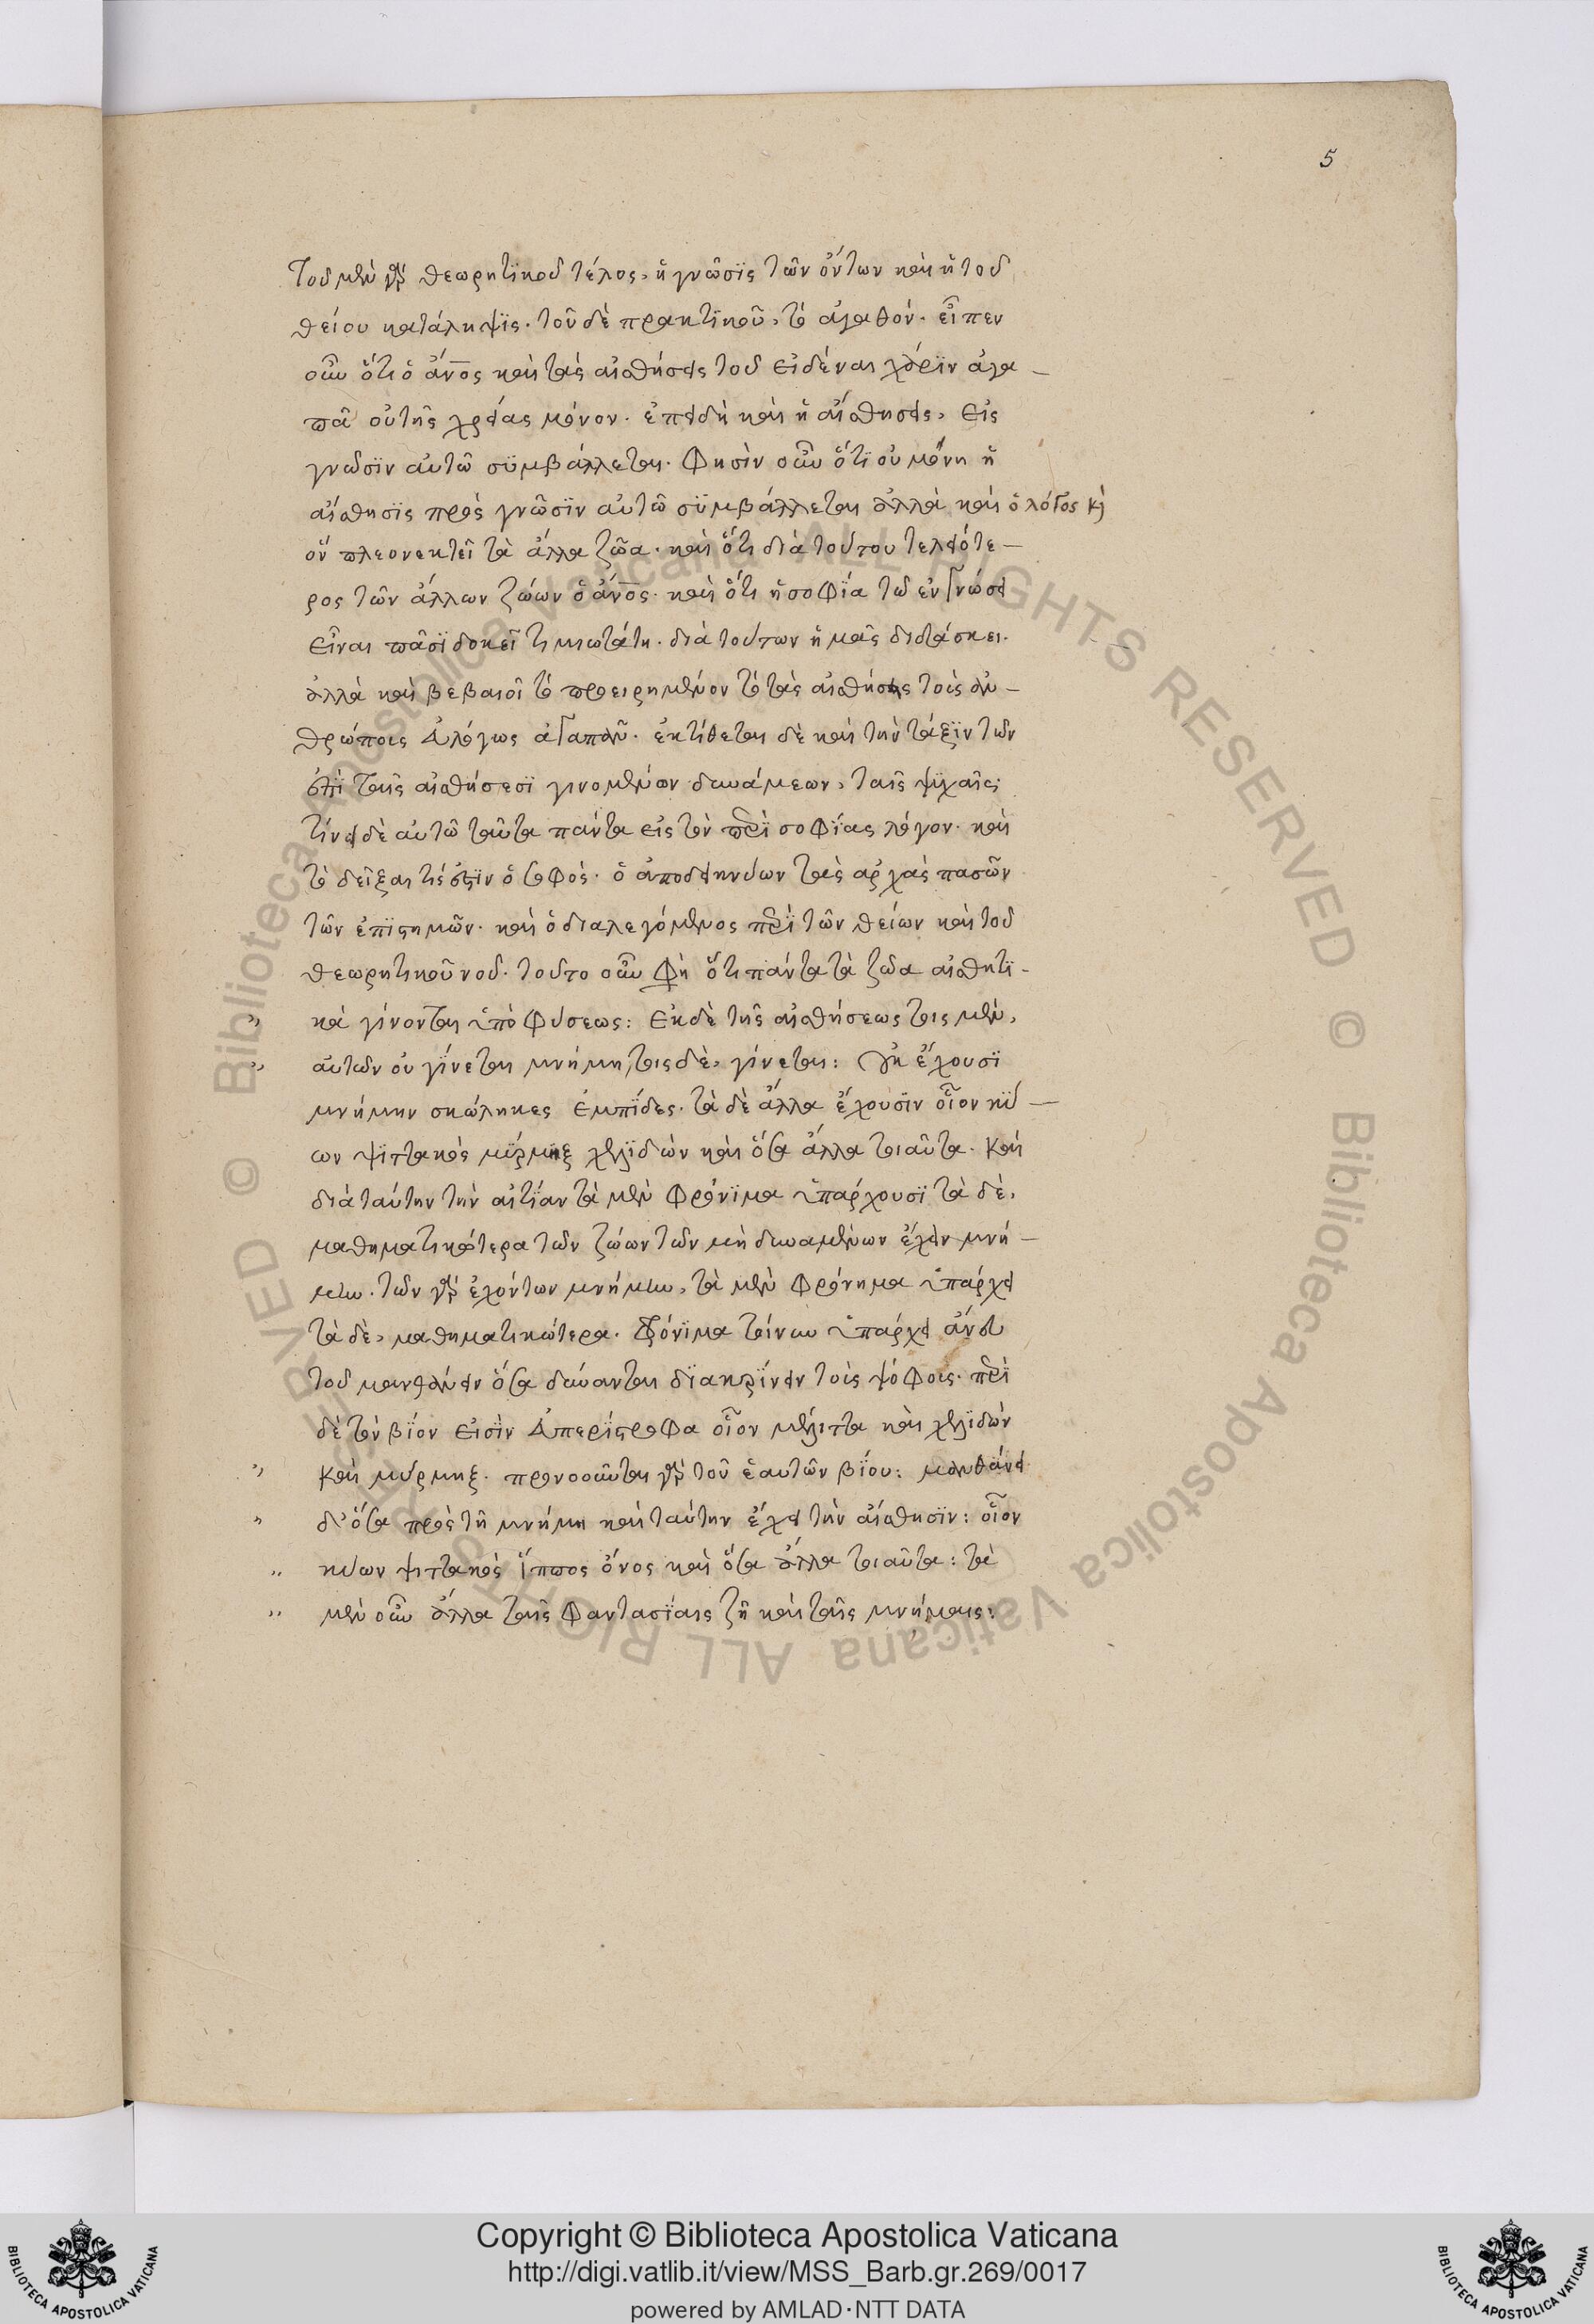 5
Τοῦ μὲν γὰρ θεωρητϊκοῦ τέλος, ἡ γνῶσϊς τῶν ὄντων καὶ ἡ τοῦ
θείου κατάληψϊς. τοῦ δὲ πρακτϊκοῦ, τὸ ἀγαθόν. εἶπεν
οὖν ὅτι ὁ ἄν̅ος καὶ τὰς αἰσθήσεις τοῦ εἰδέναι χάρϊν ἀγα —
πᾶ οὐ τῆς χρείας μόνον. ἐπειδὴ καὶ ἡ αἴσθησεις, εἰς
γνῶσϊν αὐτῶ σϋμβάλλεται. Φησὶν οὖν ὅτϊ οὐ μόνη ἡ
αἴσθησϊς πρὸς γνῶσϊν αὐτῶ σϋμβάλλεται ἀλλὰ καὶ ὁ λόγος κὶ
οὗ πλεονεκτεῖ τὰ ἄλλα ζῶα. καὶ ὅτι διὰ τούτου τελειότε —
ρος τῶν ἄλλων ζώων ὁ ἄν̅ος. καὶ ὅτι ἡ σοφΐα τῶ ἐν γνώσει
εἶναι πᾶσϊ δοκεῖ τιμιωτάτη. διὰ τούτων ἡμᾶς διδάσκει.
ἀλλὰ καὶ βεβαιοῖ τὸ προειρημένον τὸ τὰς αἰσθήσεις τοὶς ἀν —
θρώποις ἀλόγως ἀγαπᾶν. ἐκτίθεται δὲ καὶ τὴν τάξϊν τῶν
ἐπϊ ταῖς αἰσθήσεσϊ γινομένων δυνάμεων, ταῖς ψϋχαῖς;
τίνει δὲ αὐτῶ ταῦτα πάντα εἰς τὸν περὶ σοφΐας λόγον. καὶ
τὸ δεῖξαι τίς ἐστϊν ὁ σοφός. ὁ ἀποδεικνύων τὰς ἀρχὰς πασῶν
τῶν ἐπϊστημῶν. καὶ ὁ διαλεγόμενος περὶ τῶν θείων καὶ τοῦ
θεωρητικοῦ νοῦ. τοῦτο οὖν φὴ ὅτι πάντα τὰ ζῶα αἰσθητϊ -
" κὰ γίνονται ὑπὸ φύσεως: ἐκ δὲ τῆς αἰσθήσεως τοις μὲν,
" αὐτῶν οὐ γίνεται μνήμη, τοις δὲ, γίνεται: οὐκ ἔχουσϊ
μνήμην σκώληκες ἐμπΐδες. τὰ δὲ ἄλλα ἔχουσϊν οἷον κϋ —
ων ψϊττακὸς μύρμηξ χελϊδὼν καὶ ὅσα ἄλλα τοιαῦτα. καὶ
διὰ ταύτην τὴν αἰτΐαν τὰ μὲν φρόνϊμα ὑπάρχουσϊ τὰ δὲ,
μαθηματικώτερα τῶν ζώων τῶν μὴ δυναμένων ἔχειν μνή —
μην. τῶν γὰρ ἐχόντων μνήμην, τὰ μὲν φρόνημα ὑπάρχει
τὰ δὲ, μαθηματικώτερα. Φρόνϊμα τοίνυν ὑπάρχει ἄνευ
τοῦ μανθάνειν ὅσα δύνανται δϊακρΐνειν τοὶς ψόφοις. περὶ
δὲ τὸν βΐον εἰσὶν ἀπερίστροφα οἷον μέλιττα καὶ χελϊδὼν
" καὶ μύρμηξ. προνοοῦνται γὰρ τοῦ ἑαυτῶν βΐου: μανθάνει
" δ' ὅσα πρὸς τῆ μνήμη καὶ ταύτην ἔχει τὴν αἴσθησϊν: οἷον
" κύων ψιττακὸς ἵππος ὄνος καὶ ὅσα ἄλλα τοιαῦτα: τὰ
" μὲν οὖν ἄλλα ταῖς φαντασΐαις ζῆ καὶ ταῖς μνήμαις:
© Biblioteca Apostolica Vaticana ALL RIGHTS RESERVED © Biblioteca Apostolica Vaticana ALL RIGHTS RESERVED
Copyright © Biblioteca Apostolica Vaticana
http://digi.vatlib.it/view/MSS_Barb.gr.269/0017
powered by AMLAD·NTT DATA
BIBLIOTECA APOSTOLICA VATICANA
BIBLIOTECA APOSTOLICA VATICANA